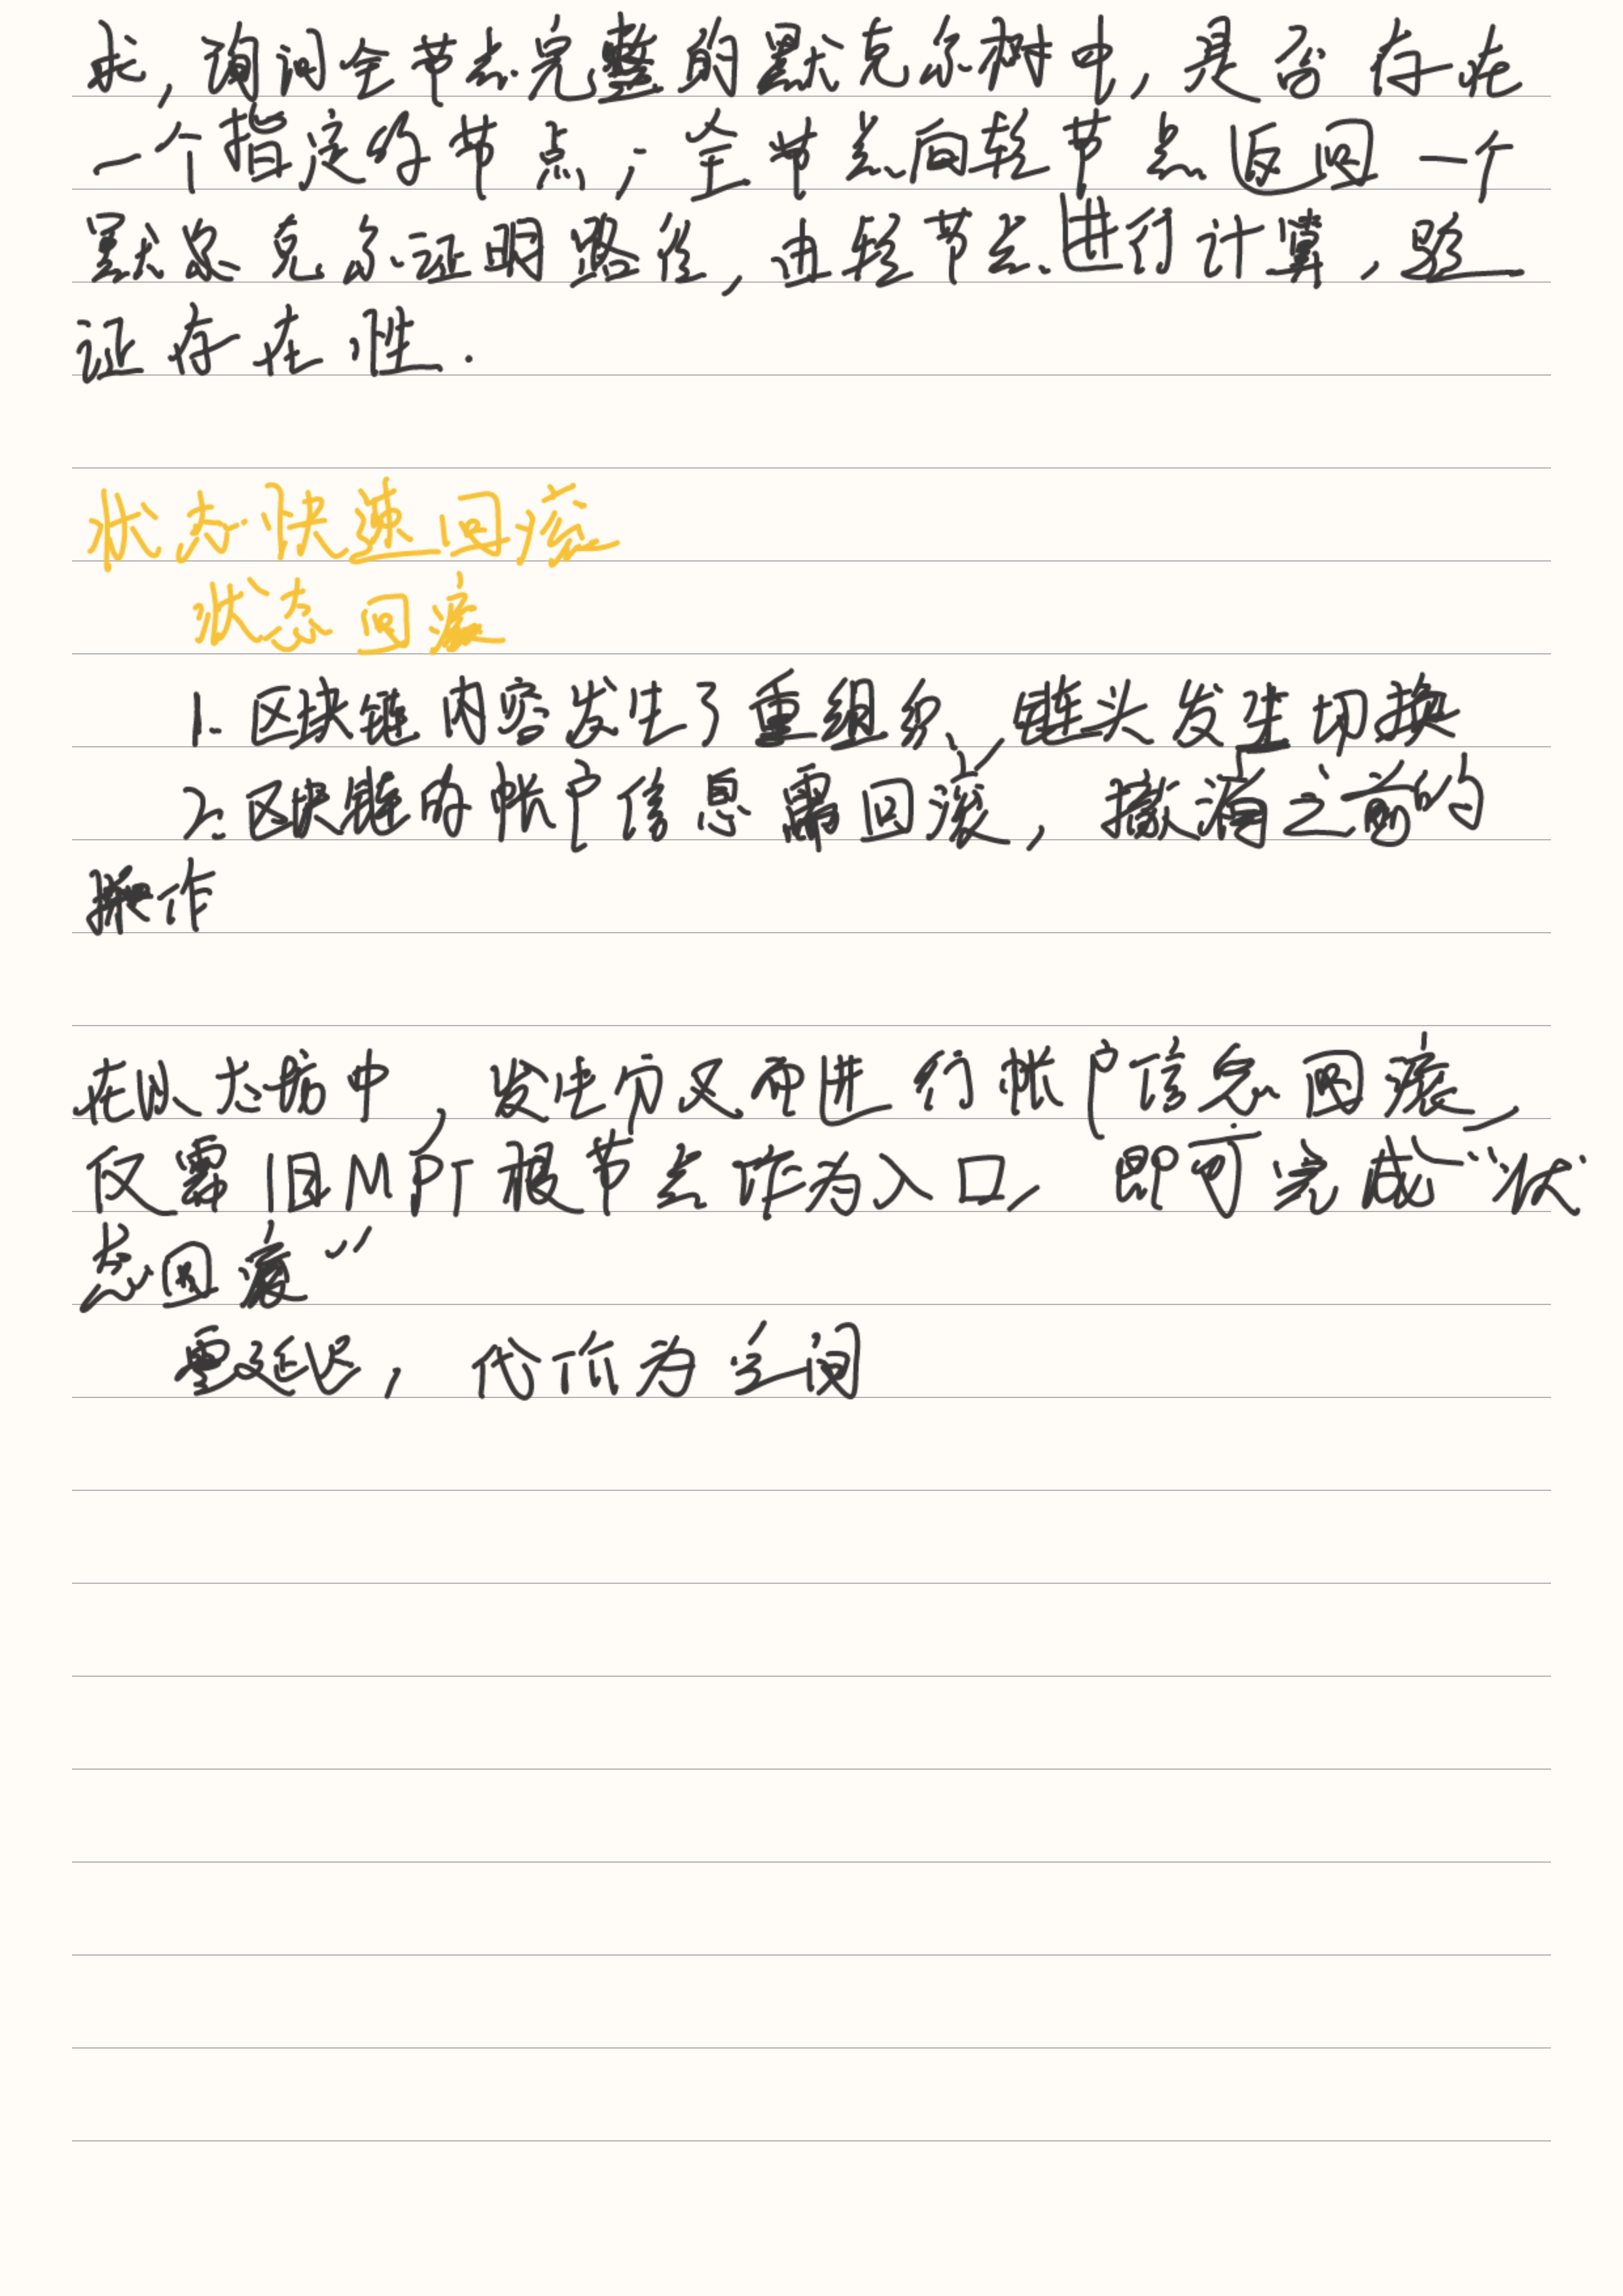 求，询问全节点完整的默克尔树中，是否存在
一个指定的节点；全节点向轻节点返回一个
默尔克尔证明路径，由轻节点进行计算，验
证存在性.
状态快速回滚
状态回滚
1. 区块链内容发生了重组织，链头发生切换
2. 区块链的帐户信息需回滚，撤消之前的
操作
在以太坊中，发生分叉而进行帐户信息回滚，
仅需旧MPT根节点作为入口，即可完成“状
态回滚”
延迟，代价为空间